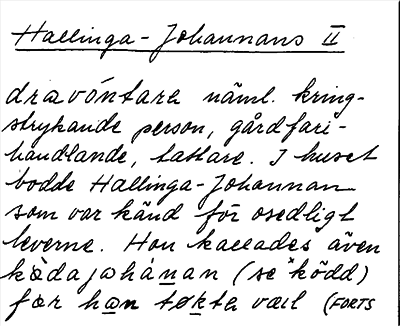 Hallinga-Johannans II
dravóntara näml. kring-
strykande person, gårdfari-
handlande, tattare. I huset
bodde Hallinga-Johannan
som var känd för osedligt
leverne. Hon kallades även
kòdajɷhánan (se "ködd)
fær hɷn tøkte væl (FORTS